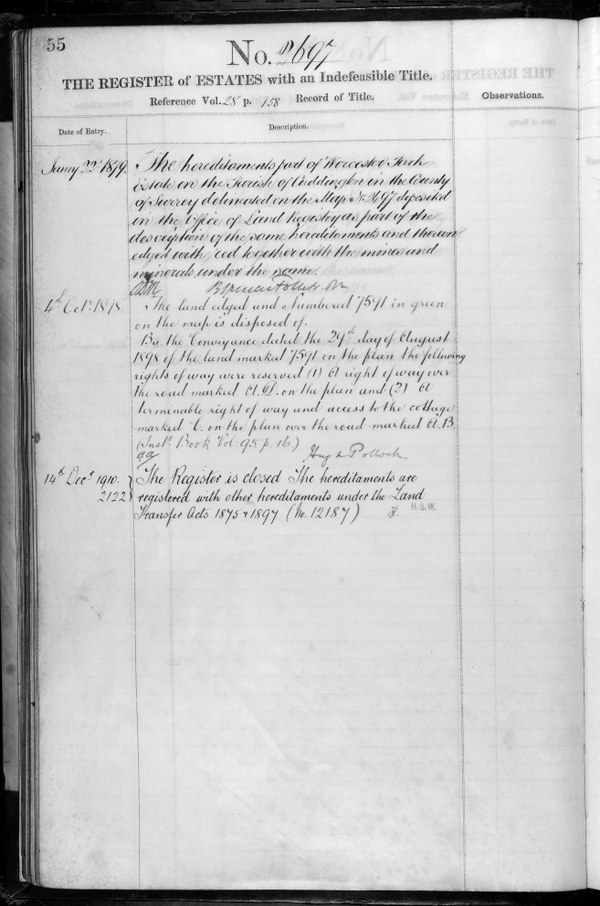 55
No. 2697
THE REGISTER of ESTATES with an Indefeasible Title.
Reference Vol. 28 p. 158 Record of Title.
Observations.
Date of Entry.
Description.
22 1879. The hereditaments part of Worcester Park
Estate in the Parish of Cuddington in the County
of Surrey delineated on the Map No. 2697 deposited
in the Office of Land Registry as part of the
description of the same hereditaments and thereon
edged with red together with the mines and
minerals under the same.
4th Octr 1898. The land edged and numbered 7591 in green
on the map is disposed of.
By the Conveyance dated the 29th day of August
1898 of the land marked 7591 on the plan the following
rights of way were reserved (1) A right of way over
the road marked A.D. on the plan and (2) A
terminable right of way and access to the cottage
marked C. on the plan over the road marked A.B.
(Instt. Book Vol. 95 p. 16)
Pollock
14th Decr 1910. The Register is closed The hereditaments are
2122 registered with other hereditaments under the Land
Transfer Acts 1875 & 1897 (No. 12187) H.S.W.